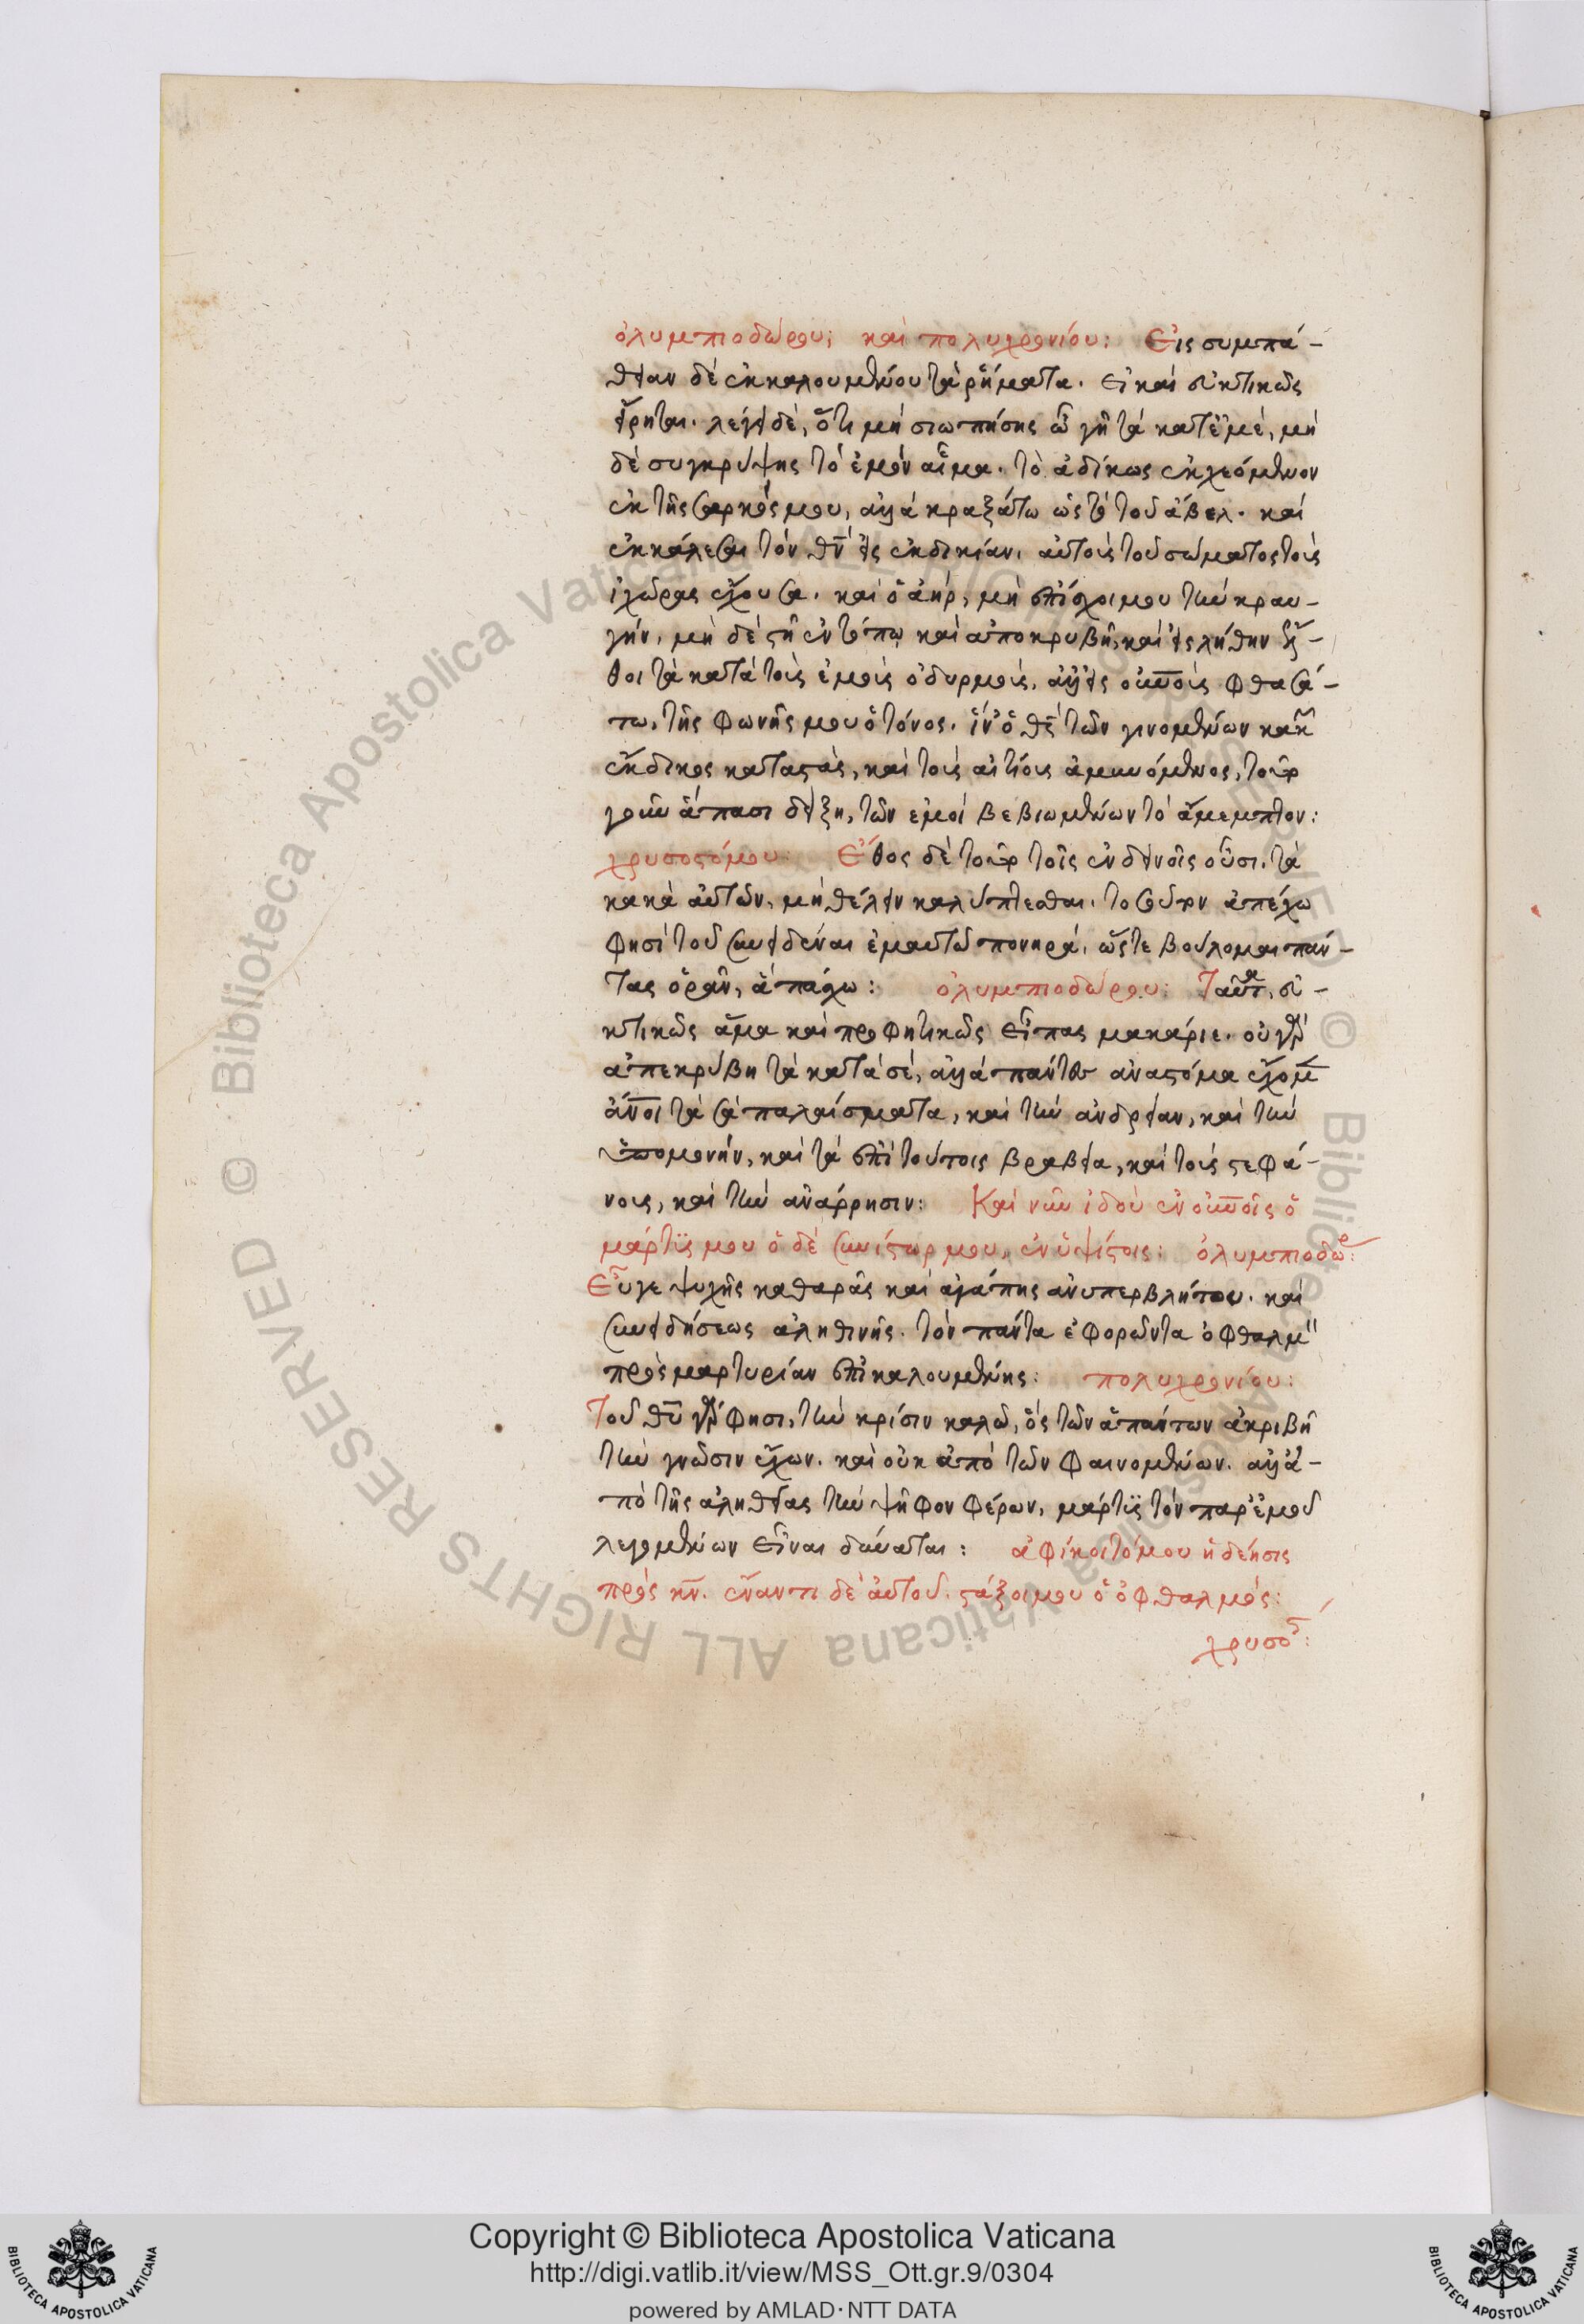 ὀλυμπιοδώρου: καὶ πολυχρονίου: Εἰς συμπά-
θειαν δὲ ἐκκαλουμένου τὰ ῥήματα. εἰ καὶ εὐκτικῶς
εἴρηται. λέγει δὲ, ὅτι μὴ σιωπήσης ὦ γῆ τὰ κατ' ἐμὲ, μὴ
δὲ συγκρύψης τὸ ἐμὸν αἷμα. τὸ ἀδίκως ἐκχεόμενον
ἐκ τῆς σαρκός μου, ἀλλὰ κραξάτω ὡς τὸ τοῦ ἄβελ. καὶ
ἐκκάλεσαι τὸν θν εἰς ἐκδικίαν, αὐτοὺς τοῦ σώματος τοὺς
ἰχῶρας ἔχουσα. καὶ ὁ ἀὴρ, μὴ ἐπίσχοι μου τὴν κραυ-
γήν, μὴ δὲ στῆ ἐν τόπω καὶ ἀποκρυβῆ, καὶ εἰς λήθην ἔλ-
θοι τὰ κατὰ τοὺς ἐμοὺς ὀδυρμοὺς, ἀλλ' εἰς οὐνοὺς φθασά-
τω, τῆς φωνῆς μου ὁ τόνος. ἵν' ὁ θς τῶν γινομένων κακῶν
ἔκδικος καταστὰς, καὶ τοὺς αἰτίους ἀμυνόμενος, τοιγαρ
γοῦν ἅπασι δείξη, τῶν ἐμοὶ βεβιωμένων τὸ ἄμεμπτον:
χρυσοστόμου: Ἔθος δὲ τοῦτο τοῖς ἐν δεινοῖς οὖσι. τὰ
κακὰ αὐτῶν, μὴ θέλειν καλύπτεσθαι. τοσοῦτον ἀπέχω
φησὶ τοῦ συνειδέναι ἐμαυτῶ πονηρά. ὥστε βούλομαι πάν-
τας ὁρᾶν, ἃ πάσχω: ὀλυμπιοδώρου: Ταῦτα, εὐ-
κτικῶς ἅμα καὶ προφητικῶς εἶπας μακάριε. οὐ γὰρ
ἀπεκρύβη τὰ κατὰ σὲ, ἀλλὰ πάντες ἀνὰ στόμα ἔχομεν
ἄνοι τὰ σὰ παλαίσματα, καὶ τὴν ἀνδρείαν, καὶ τὴν
ὑπομονήν, καὶ τὰ ἐπὶ τούτοις βραβεῖα, καὶ τοὺς στεφά-
νους, καὶ τὴν ἀνάρρησιν: Καὶ νῦν ἰδοὺ ἐν οὐνοῖς ὁ
μάρτυς μου ὁ δὲ συνίστωρ μου, ἐν ὑψίστοις: ὀλυμπιοδώρ:
Εὖγε ψυχῆς καθαρᾶς καὶ ἀγάπης ἀνυπερβλήτου. καὶ
συνειδήσεως ἀληθινῆς. τὸν πάντα ἐφορῶντα ὀφθαλμὸν
πρὸς μαρτυρίαν ἐπικαλουμένης: πολυχρονίου:
Τοῦ θυ γὰρ φησι, τὴν κρίσιν καλῶ, ὃς τῶν ἁπάντων ἀκριβῆ
τὴν γνῶσιν ἔχων. καὶ οὐκ ἀπὸ τῶν φαινομένων. ἀλλ' ἀ-
πὸ τῆς ἀληθείας τὴν ψῆφον φέρων, μάρτυς τῶν παρ' ἐμοῦ
λεγομένων εἶναι δύναται: ἀφίκοιτό μου ἡ δέησις
πρὸς κν. ἔναντι δὲ αὐτοῦ. στάζοι μου ὁ ὀφθαλμός:
χρυσοστ:
Copyright © Biblioteca Apostolica Vaticana
http://digi.vatlib.it/view/MSS_Ott.gr.9/0304
powered by AMLAD·NTT DATA